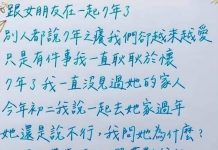 跟女朋友在一起7年了
別人都說7年之癢我們卻越來越愛
只是有件事我一直耿耿於懷
7年了我一直沒見過她的家人
今年初二我說一起去她家過年
她還是說不行,我問她為什麼?